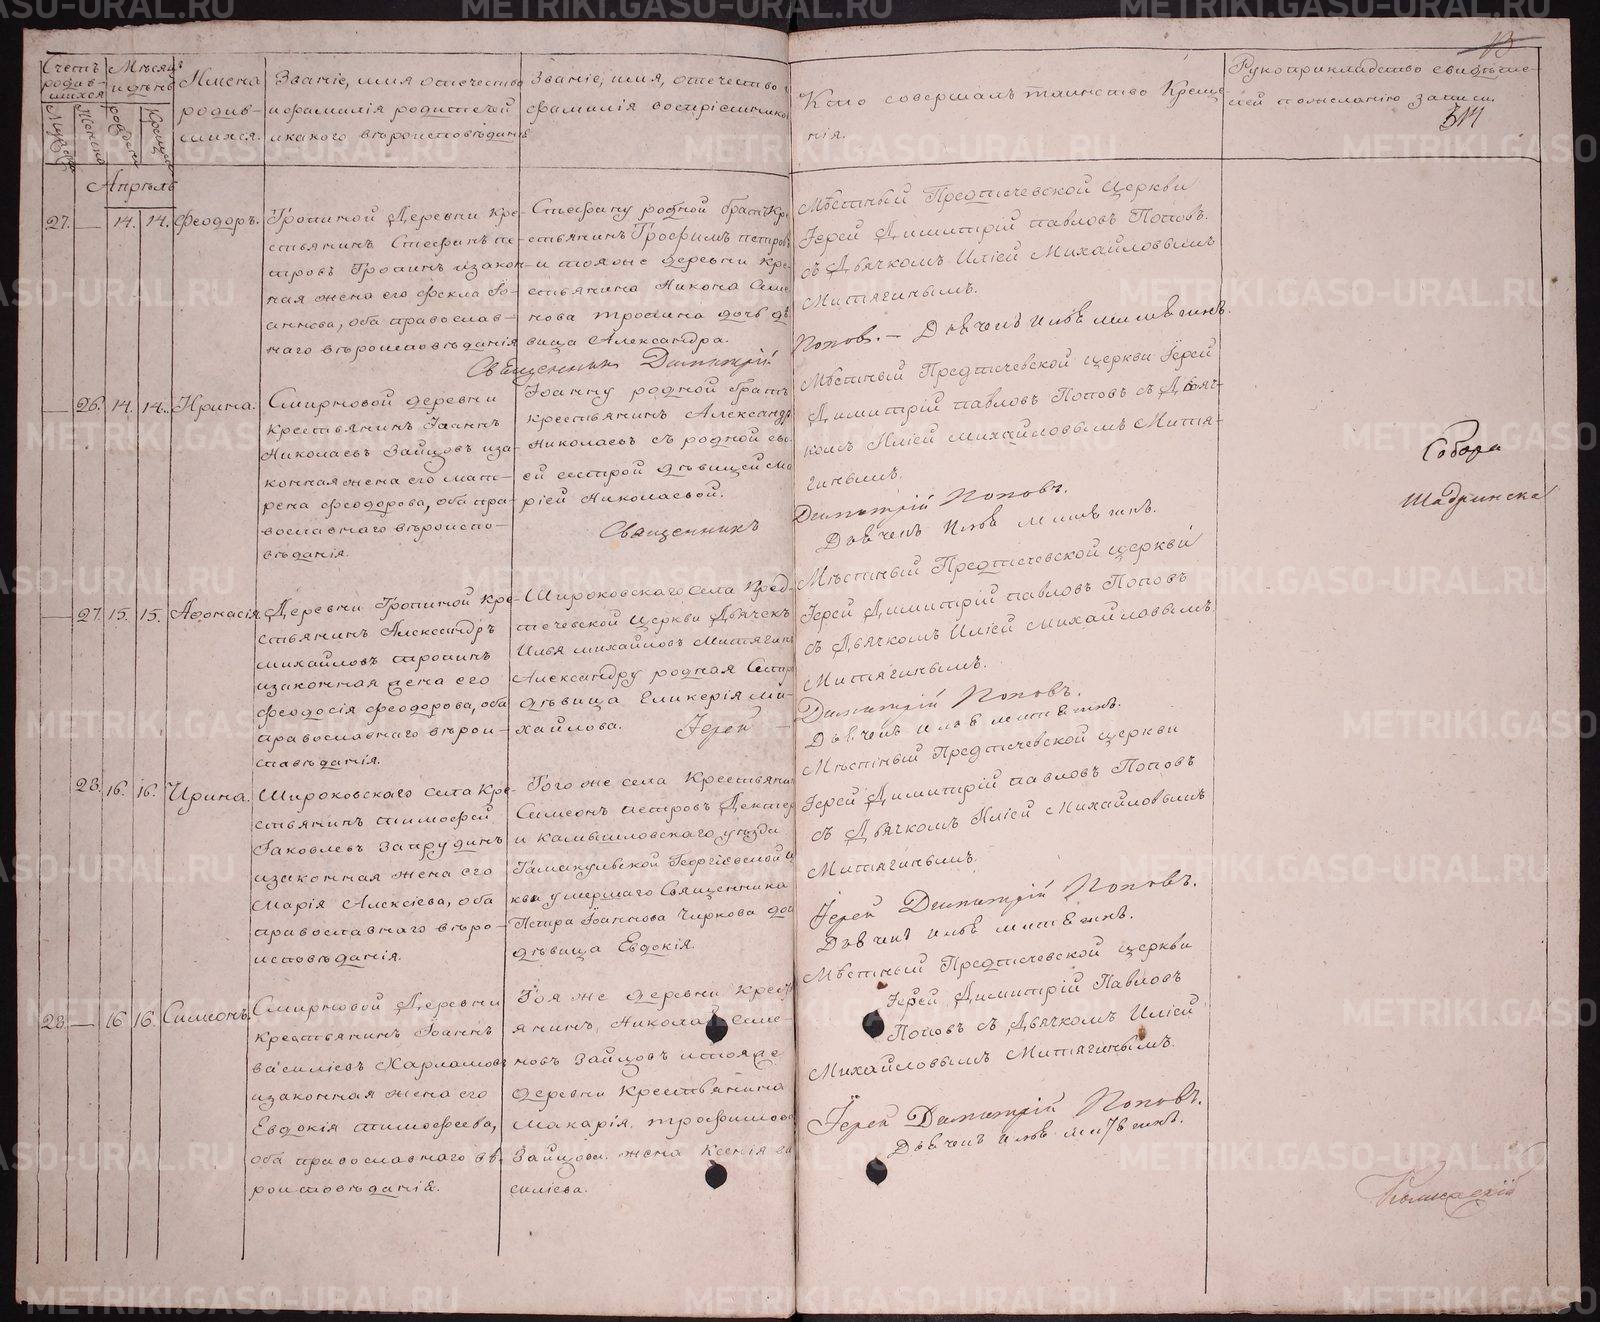 Счетъ родив-
шихся
Мужеска
Женска
Мѣсяцъ
и день
рожденія
Крещенія
Имена
родив-
шихся.
Званіе, имя отечество
и фамилія родителей
и какого вѣроисповѣданія
Званіе, имя, отечество и
фамилія воспріемниковъ
Кто совершалъ таинство Креще-
нія.
Рукоприкладство свидѣтелей
по желанію записи.
13
314
Апрѣль
27. — 14. 14. Феодоръ.
Тропиной Деревни Кре-
стьянинъ Стефанъ пе-
тровъ Тропинъ и закон-
ная жена его Фекла Іо-
аннова, оба православ-
наго вѣроисповѣданія
Стефану родной братъ Кре-
стьянинъ Трофимъ петровъ
и тояже деревни Кре-
стьянина Никона Семе-
нова Тропина дочь дѣ-
вица Александра.
Священникъ Димитрій
Мѣстный Предтечевской церкви
Іерей Димитрій павловъ Поповъ.
съ Дьячкомъ Иліей Михайловымъ
Митягинымъ.
Поповъ. — Дьячекъ Илья Митягинъ.
— 26. 14. 14. Ирина.
Смирновой деревни
крестьянинъ Іоаннъ
Николаевъ Зайцовъ и за-
конная жена его Мат-
рена Феодорова, оба пра-
вославнаго вѣроиспо-
вѣданія.
Іоанну родной братъ
крестьянинъ Александръ
Николаевъ съ родной сво-
ей сестрой дѣвицей Ма-
ріей Николаевой.
Священникъ
Мѣстный Предтечевской церкви Іерей
Димитрій павловъ Поповъ съ Дьяч-
комъ Иліей Михайловымъ Митя-
гинымъ.
Димитрій Поповъ.
Дьячекъ Илья Митягинъ.
Собора
Шадринска
— 27. 15. 15. Афонасія.
Деревни Тропиной Кре-
стьянинъ Александръ
Михайловъ Тропинъ
и законная жена его
Феодосія Феодорова, оба
православнаго вѣроис-
повѣданія.
Широковскаго села Пред-
течевской церкви Дьячекъ
Илья Михайловъ Митягинъ
Александру родная сестра
дѣвица Гликерія Ми-
хайлова. Іерей —
Мѣстный Предтечевской церкви
Іерей Димитрій павловъ Поповъ
съ Дьячкомъ Иліей Михайловымъ
Митягинымъ.
Димитрій Поповъ.
Дьячекъ Илья Митягинъ.
28. 16. 16. Ирина.
Широковскаго села Кре-
стьянинъ Тимофей
Іаковлевъ Запрудинъ
и законная жена его
Марія Алексіева, оба
православнаго вѣро-
исповѣданія.
Того же села Крестьянинъ
Симеонъ петровъ
и Камышловскаго уѣзда
Тамакульской Георгіевской
умершаго Священника
Петра Іоаннова Чиркова
дѣвица Евдокія.
Мѣстный Предтечевской церкви
Іерей Димитрій павловъ Поповъ
съ Дьячкомъ Иліей Михайловымъ
Митягинымъ.
Іерей Димитрій Поповъ.
Дьячекъ Илья Митягинъ.
28. — 16 16. Симеонъ.
Смирновой Деревни
Крестьянинъ Іоаннъ
Василіевъ Харламовъ
и законная жена его
Евдокія Тимофеева,
оба православнаго вѣ-
роисповѣданія.
Тоя же деревни Крест
янинъ, Николай Семе-
новъ Зайцовъ и тояже
деревни Крестьянина
Макарія Трофимова
Зайцова жена Ксенія Ва-
силіева.
Мѣстный Предтечевской церкви
Іерей Димитрій Павловъ
Поповъ съ Дьячкомъ Иліей
Михайловымъ Митягинымъ.
Іерей Димитрій Поповъ.
Дьячекъ Илья Митягинъ.
METRIKI.GASO-URAL.RU